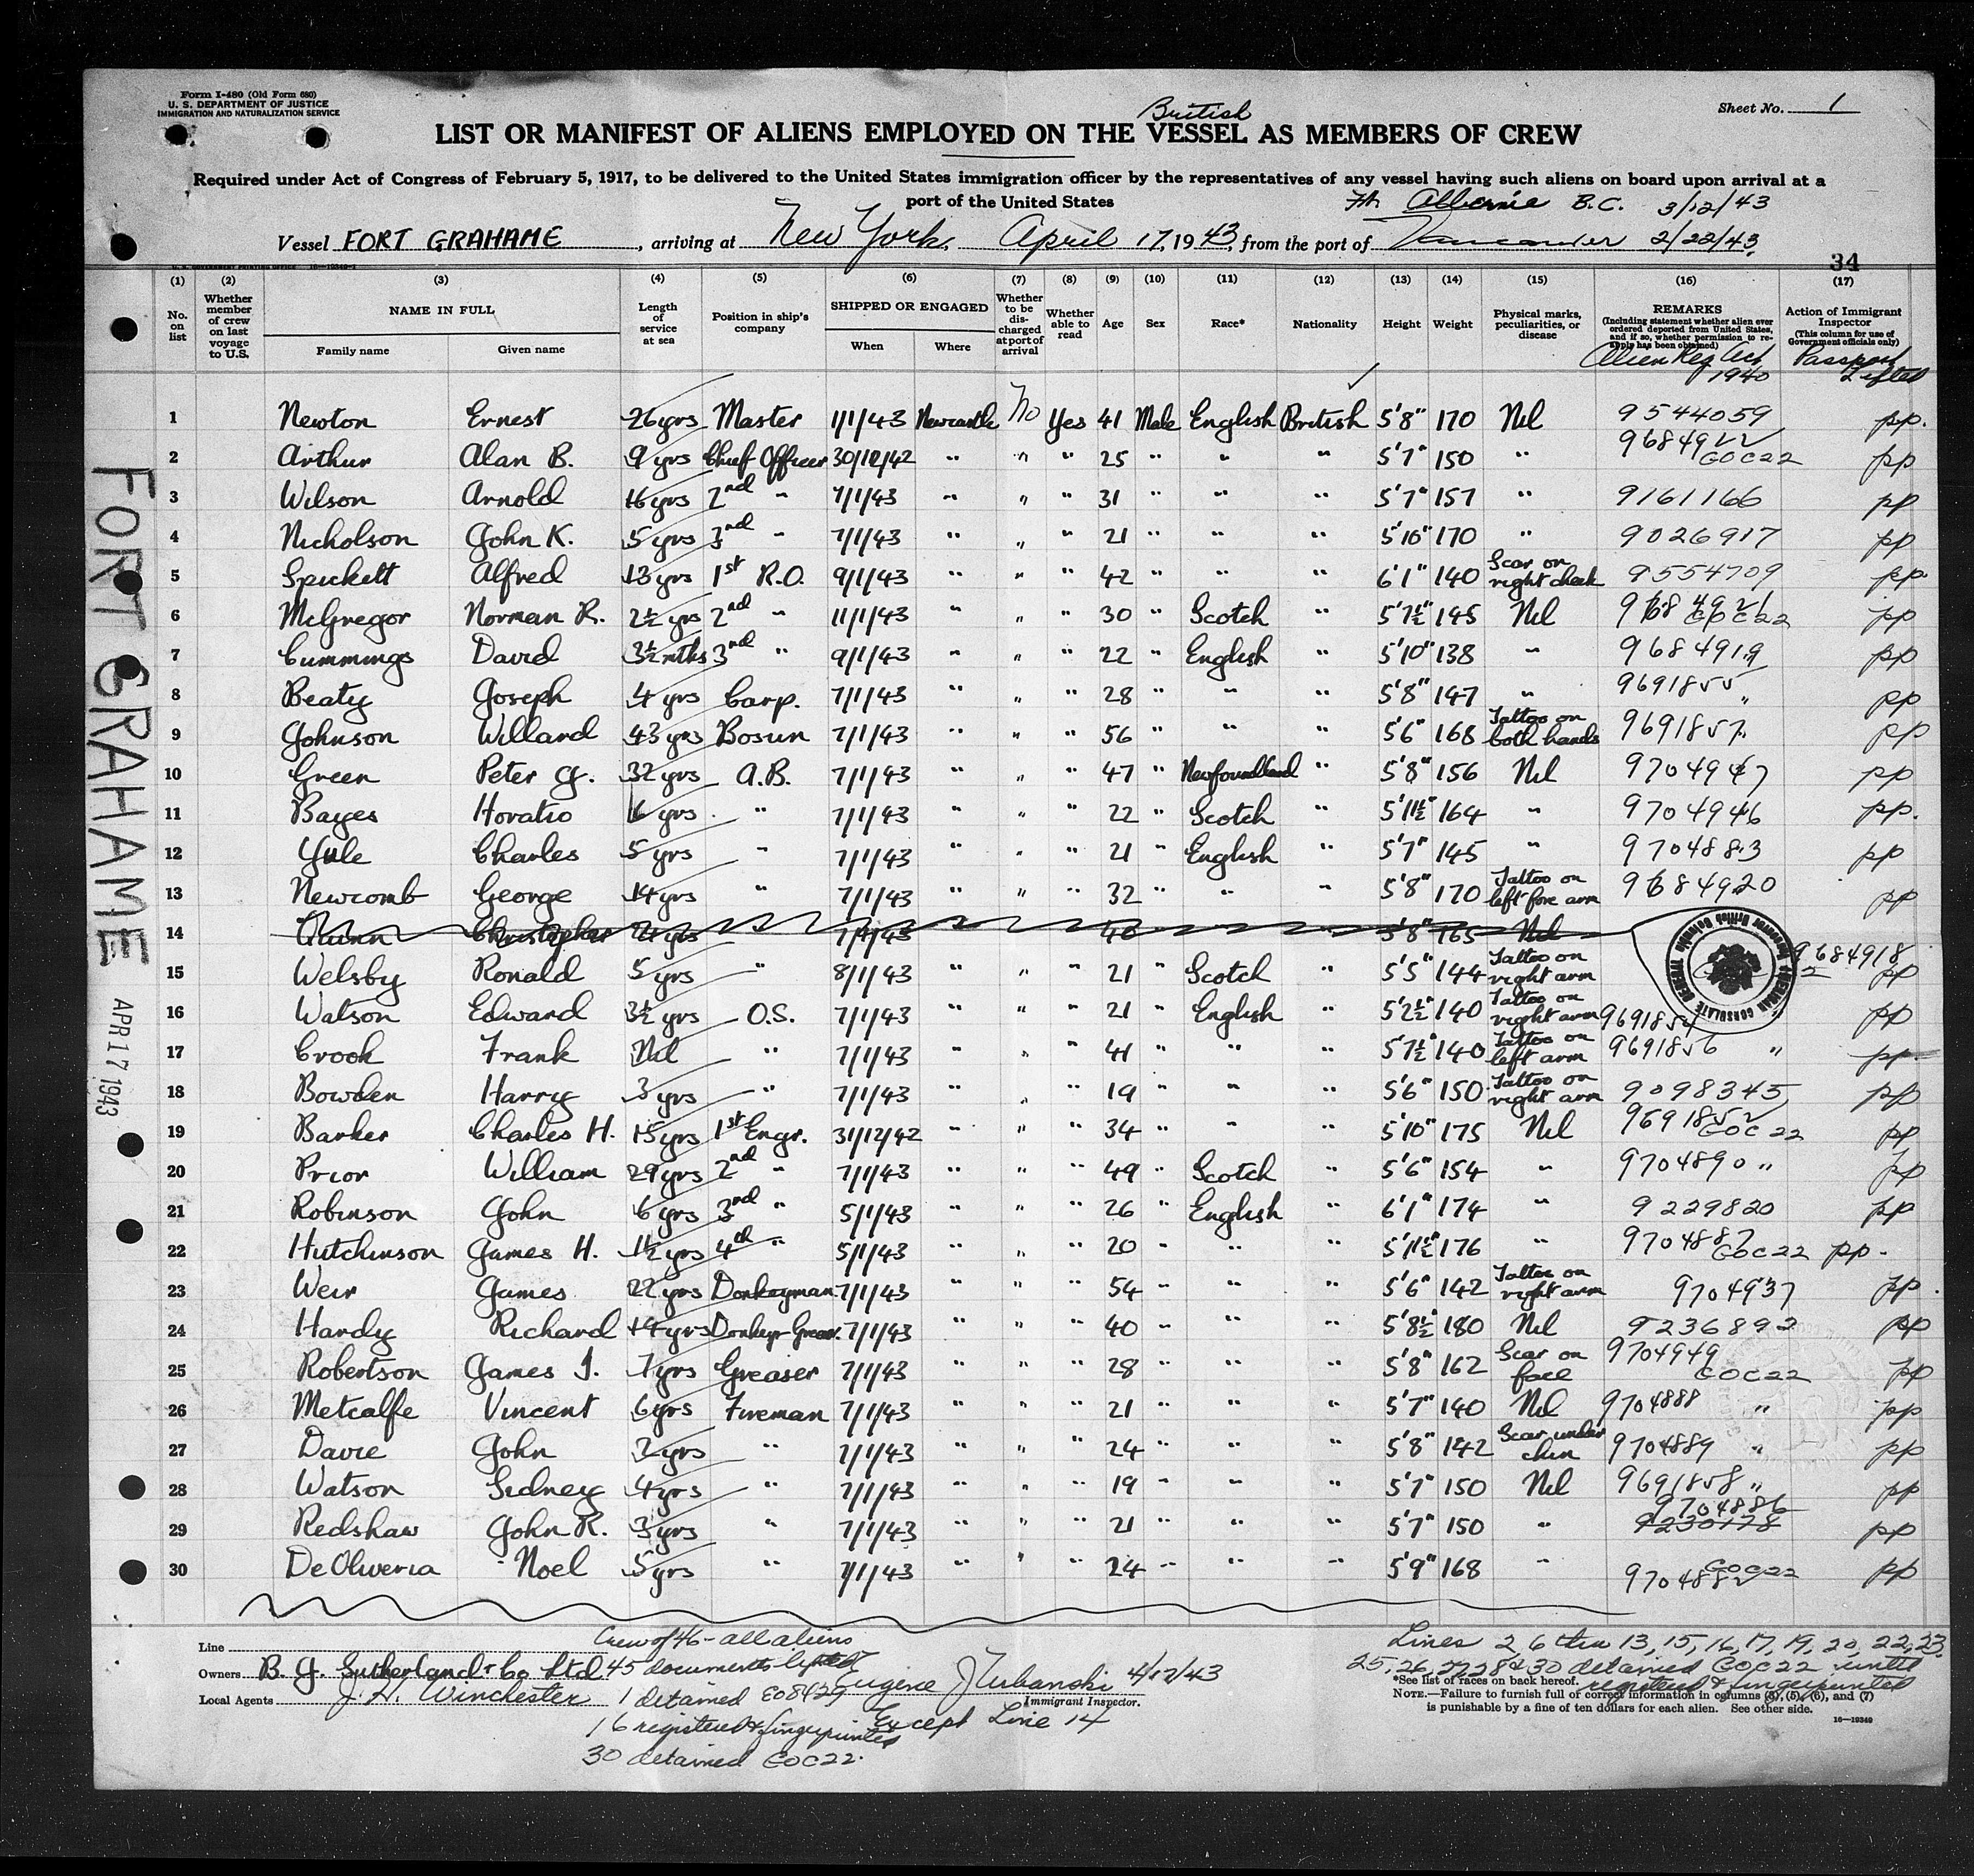 Form I-480 (Old Form 680)
U. S. DEPARTMENT OF JUSTICE
IMMIGRATION AND NATURALIZATION SERVICE
Sheet No. 1
British
LIST OR MANIFEST OF ALIENS EMPLOYED ON THE VESSEL AS MEMBERS OF CREW
Required under Act of Congress of February 5, 1917, to be delivered to the United States immigration officer by the representatives of any vessel having such aliens on board upon arrival at a
port of the United States
Albernie B.C. 3/12/43
Vessel FORT GRAHAME, arriving at New York, April 17, 1943, from the port of Vancouver 2/22/43
34
(1) (2) (3) (4) (5) (6) (7) (8) (9) (10) (11) (12) (13) (14) (15) (16) (17)
No. on list
Whether member of crew on last voyage to U.S.
NAME IN FULL
Family name Given name
Length of service at sea
Position in ship's company
SHIPPED OR ENGAGED
When Where
Whether to be discharged at port of arrival
Whether able to read
Age Sex Race* Nationality Height Weight
Physical marks, peculiarities, or disease
REMARKS
(Including statement whether alien ever ordered deported from United States, and if so, whether permission to reapply has been obtained)
Alien Reg Act 1940
Action of Immigrant Inspector
(This column for use of Government officials only)
Passport Lifted
1 Newton Ernest 26 yrs Master 1/1/43 Newcastle No Yes 41 Male English British 5'8" 170 Nil 9544059 pp.
2 Arthur Alan B. 9 yrs Chief Officer 30/12/42 " " " 25 " " " 5'7" 150 " 9684922 COC22 pp
3 Wilson Arnold 16 yrs 2nd " 7/1/43 " " " 31 " " " 5'7" 157 " 9161166 pp
4 Nicholson John K. 5 yrs 3rd " 7/1/43 " " " 21 " " " 5'10" 170 " 9026917 pp
5 Spickett Alfred 13 yrs 1st R.O. 9/1/43 " " " 42 " " " 6'1" 140 Scar on right cheek 9554709 pp.
6 McGregor Norman R. 2½ yrs 2nd " 11/1/43 " " " 30 " Scotch " 5'7½" 145 Nil 9684921 COC22 pp
7 Cummings David 3½ mths 3rd " 9/1/43 " " " 22 " English " 5'10" 138 " 9684919 pp
8 Beaty Joseph 4 yrs Carp. 7/1/43 " " " 28 " " " 5'8" 147 " 9691855 " pp
9 Johnson Willard 43 yrs Bosun 7/1/43 " " " 56 " " " 5'6" 168 Tattoo on both hands 9691857 " pp
10 Green Peter J. 32 yrs A.B. 7/1/43 " " " 47 " Newfoundland " 5'8" 156 Nil 9704947 pp
11 Bayes Horatio 6 yrs " 7/1/43 " " " 22 " Scotch " 5'11½" 164 " 9704946 pp.
12 Yule Charles 5 yrs " 7/1/43 " " " 21 " English " 5'7" 145 " 9704883 pp
13 Newcomb George 14 yrs " 7/1/43 " " " 32 " " " 5'8" 170 Tattoo on left fore arm 9684920 pp
14 Quinn Christopher 7/1/43 40 5'8" 165 Nil
15 Welsby Ronald 5 yrs " 8/1/43 " " " 21 " Scotch " 5'5" 144 Tattoo on right arm 9684918 pp
AMERICAN CONSULATE
16 Watson Edward 3½ yrs O.S. 7/1/43 " " " 21 " English " 5'2½" 140 Tattoo on right arm 9691854 pp
17 Crook Frank Nil " 7/1/43 " " " 41 " " " 5'7½" 140 Tattoo on left arm 9691856 " pp
18 Bowden Harry 3 yrs " 7/1/43 " " " 19 " " " 5'6" 150 Tattoo on right arm 9098345 pp
19 Barker Charles H. 15 yrs 1st Engr. 31/12/42 " " " 34 " " " 5'10" 175 Nil 9691852 COC22 pp
20 Prior William 29 yrs 2nd " 7/1/43 " " " 49 " Scotch " 5'6" 154 " 9704890 " pp
21 Robinson John 6 yrs 3rd " 5/1/43 " " " 26 " English " 6'1" 174 " 9229820 pp
22 Hutchinson James H. 1½ yrs 4th " 5/1/43 " " " 20 " " " 5'11½" 176 " 9704887 COC22 pp.
23 Weir James 22 yrs Donkeyman 7/1/43 " " " 54 " " " 5'6" 142 Tattoo on right arm 9704937 pp.
24 Hardy Richard 14 yrs Donkeyr Greaser 7/1/43 " " " 40 " " " 5'8½" 180 Nil 9236892 pp
25 Robertson James I. 7 yrs Greaser 7/1/43 " " " 28 " " " 5'8" 162 Scar on face 9704949 COC22 pp
26 Metcalfe Vincent 6 yrs Fireman 7/1/43 " " " 21 " " " 5'7" 140 Nil 9704888 " pp
27 Davie John 2 yrs " 7/1/43 " " " 24 " " " 5'8" 142 Scar under chin 9704889 " pp
28 Watson Sidney 4 yrs " 7/1/43 " " " 19 " " " 5'7" 150 Nil 9691858 " pp
29 Redshaw John R. 3 yrs " 7/1/43 " " " 21 " " " 5'7" 150 " 9704886 9230178 pp
30 DeOliveria Noel 5 yrs " 7/1/43 " " " 24 " " " 5'9" 168 " COC22 9704882 pp
FORT GRAHAME APR 17 1943
Line
Crew of 46 - all aliens
Owners B. J. Sutherland & Co Ltd
45 documents lifted
Local Agents J. H. Winchester
1 detained EO8429
Eugene J Urbanski 4/17/43
Immigrant Inspector.
16 registered & fingerprinted
Except Line 14
30 detained COC22.
Lines 2, 6 thru 13, 15, 16, 17, 19, 20, 22, 23,
25, 26, 27, 28 & 30 detained COC22 until
registered & fingerprinted
*See list of races on back hereof.
NOTE.—Failure to furnish full or correct information in columns (4), (5), (6), and (7)
is punishable by a fine of ten dollars for each alien. See other side.
16—19349